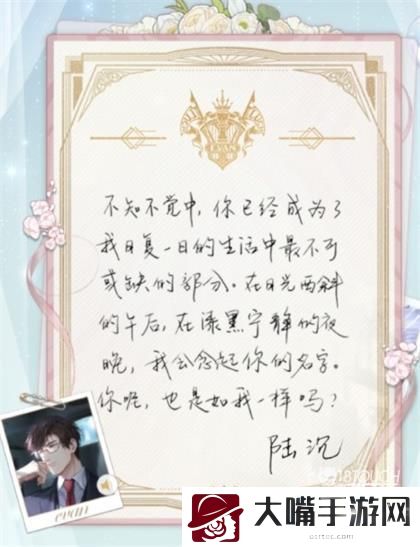 EVAN
不知不觉中，你已经成为了
我日复一日的生活中最不可
或缺的部分。在日光西斜
的午后，在漆黑宁静的夜
晚，我会念起你的名字。
你呢，也是如我一样吗？
陆沉
evan
18TOUCH
大嘴手游网